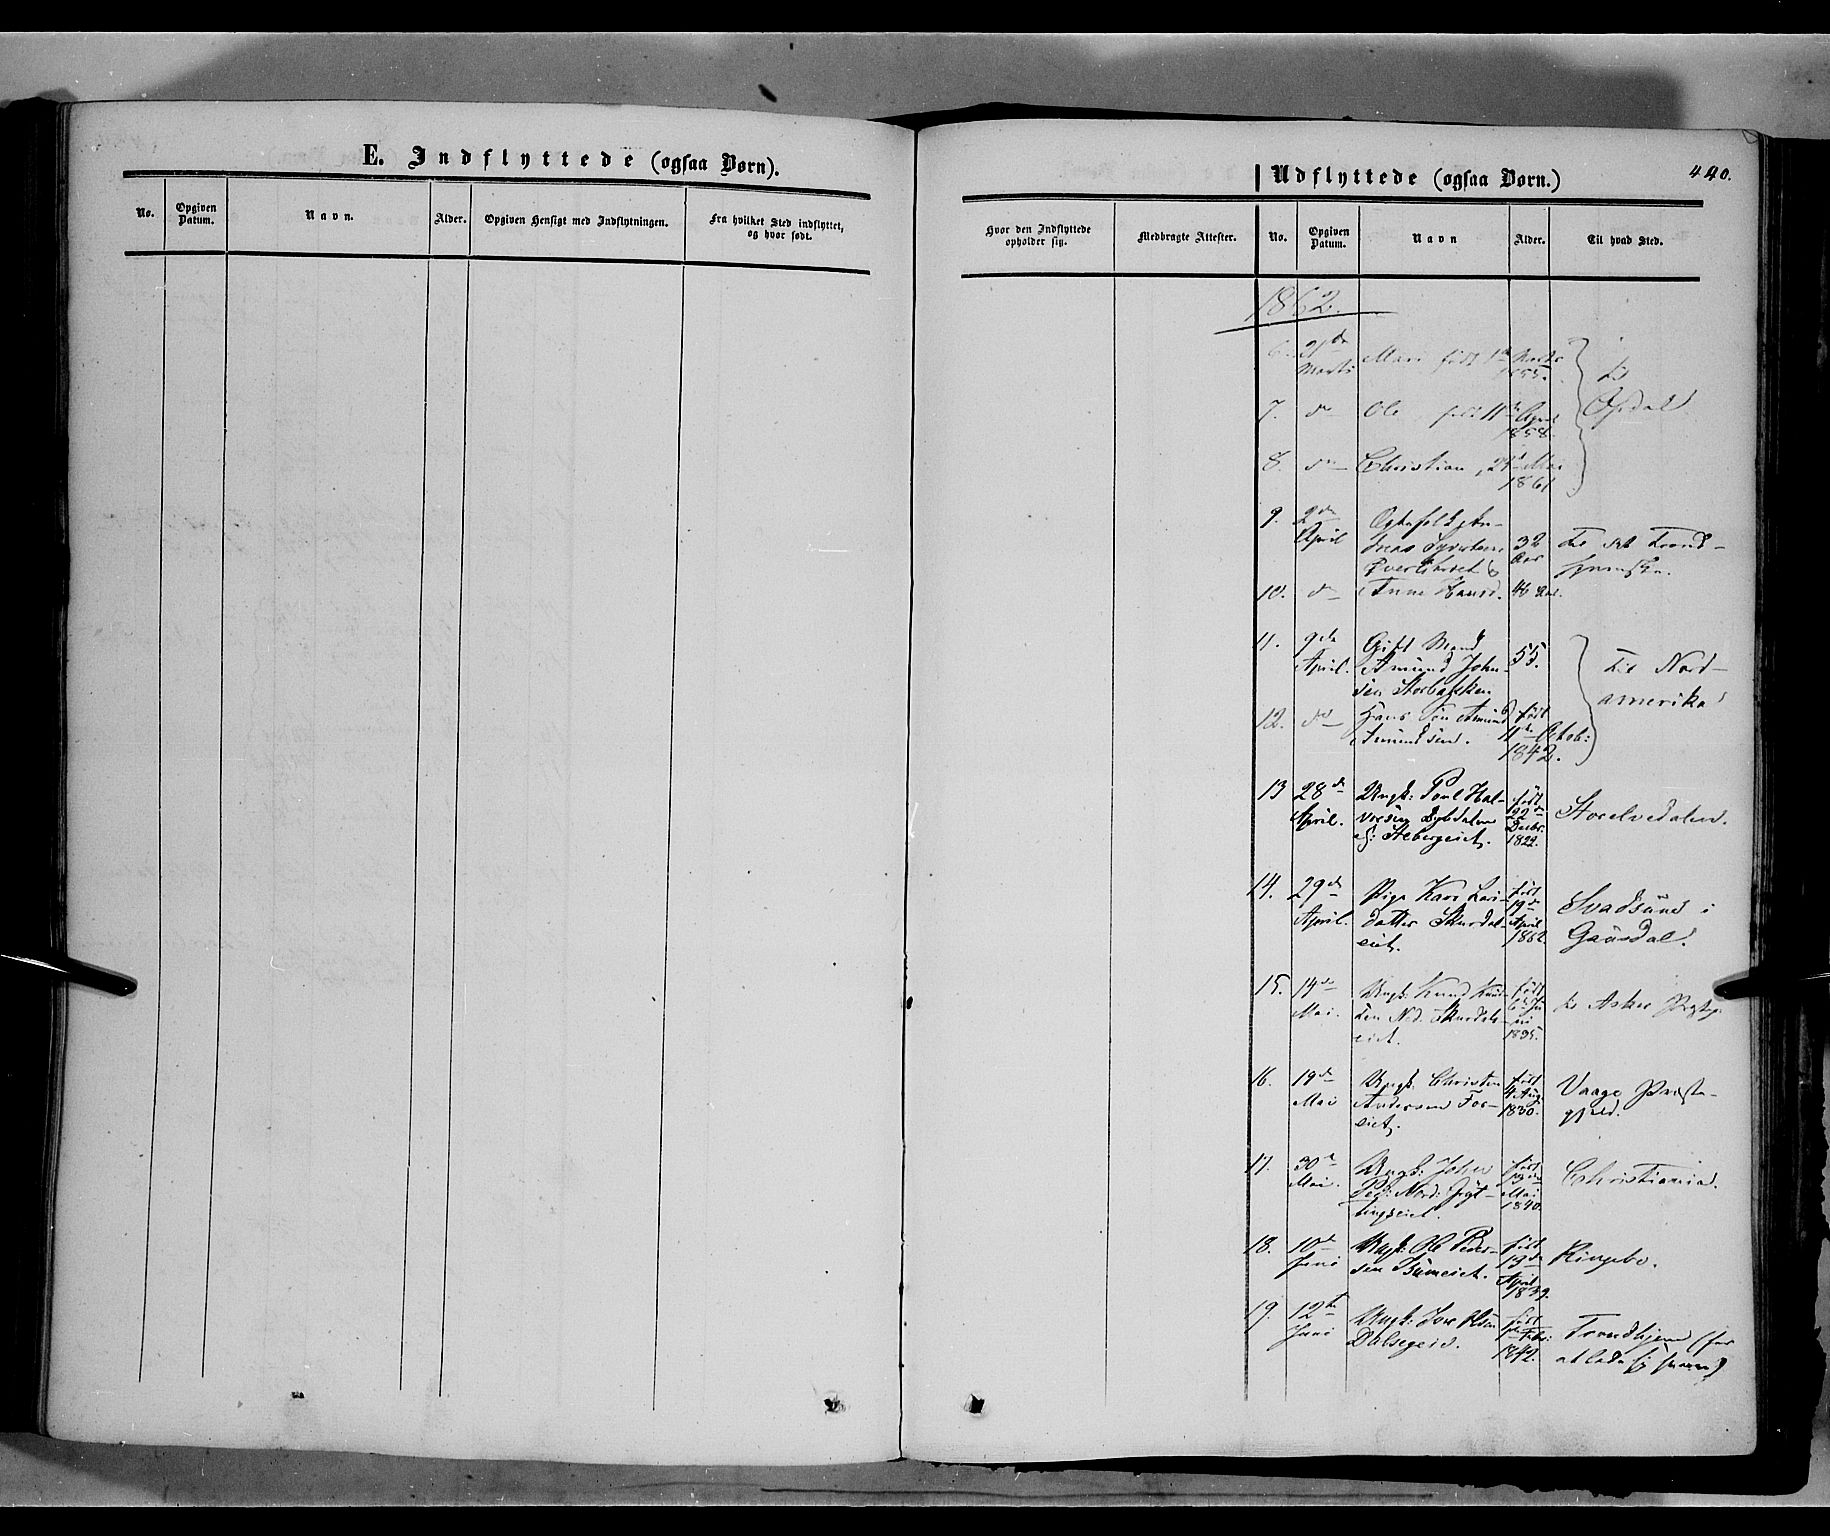 E. Indflyttede (ogsaa Børn).
No.
Opgiven Datum.
Navn.
Alder.
Opgiven Hensigt med Indflytningen.
Fra hvilket Sted indflyttet, og hvor født.
440.
Udflyttede (ogsaa Børn.)
Hvor den Indflyttede opholder sig.
Medbragte Attester.
No.
Opgiven Datum.
Navn
Alder.
Til hvad Sted.
1862.
6. 21de Marts Mari født 1ste Marts 1855.
til Opdal
7. do Ole født 11te April 1858.
8. do Christian, 24de Mai 1861
9. 2den April
32 Aar
Til det Trond-
10. do Anne Hansd. 46 Aar.
11. 9de April. Gift Mand Amund John-
sen
55.
til Nord-
amerika
12. do Hans Søn Amund
Amundsen.
født 11te Octob: 1842.
13 28de April. Ungk: Poul Hal-
vorsen
født 22de Decbr. 1822.
Storelvedalen.
14. 29de April. Pige Kari Lars-
datter Skurdal-
eiet.
født 19de April 1862.
Svadsund i
Gausdal.
15. 14de Mai. Ungk: Knud Knud-
sen Nd. Skurdals-
eiet.
født 6te Ju-
ni 1835.
til Asker Prstgj.
16. 19de Mai Ungk: Christen
Andersen For-
eiet.
født 4 Aug. 1830.
Vaage Præste-
gjeld.
17. 30te Mai. Ungk: Johan
Ped: Nord:
født 13de Mai 1840.
Christiania.
18. 10de Juni Ungk: Ole Peder-
sen
født 13de April 1839.
Ringebo.
19. 12te Juni Ungk: Iver Olsen
Dalsegeie.
født Febr: 1842.
Trondhjem (for
at lade sig